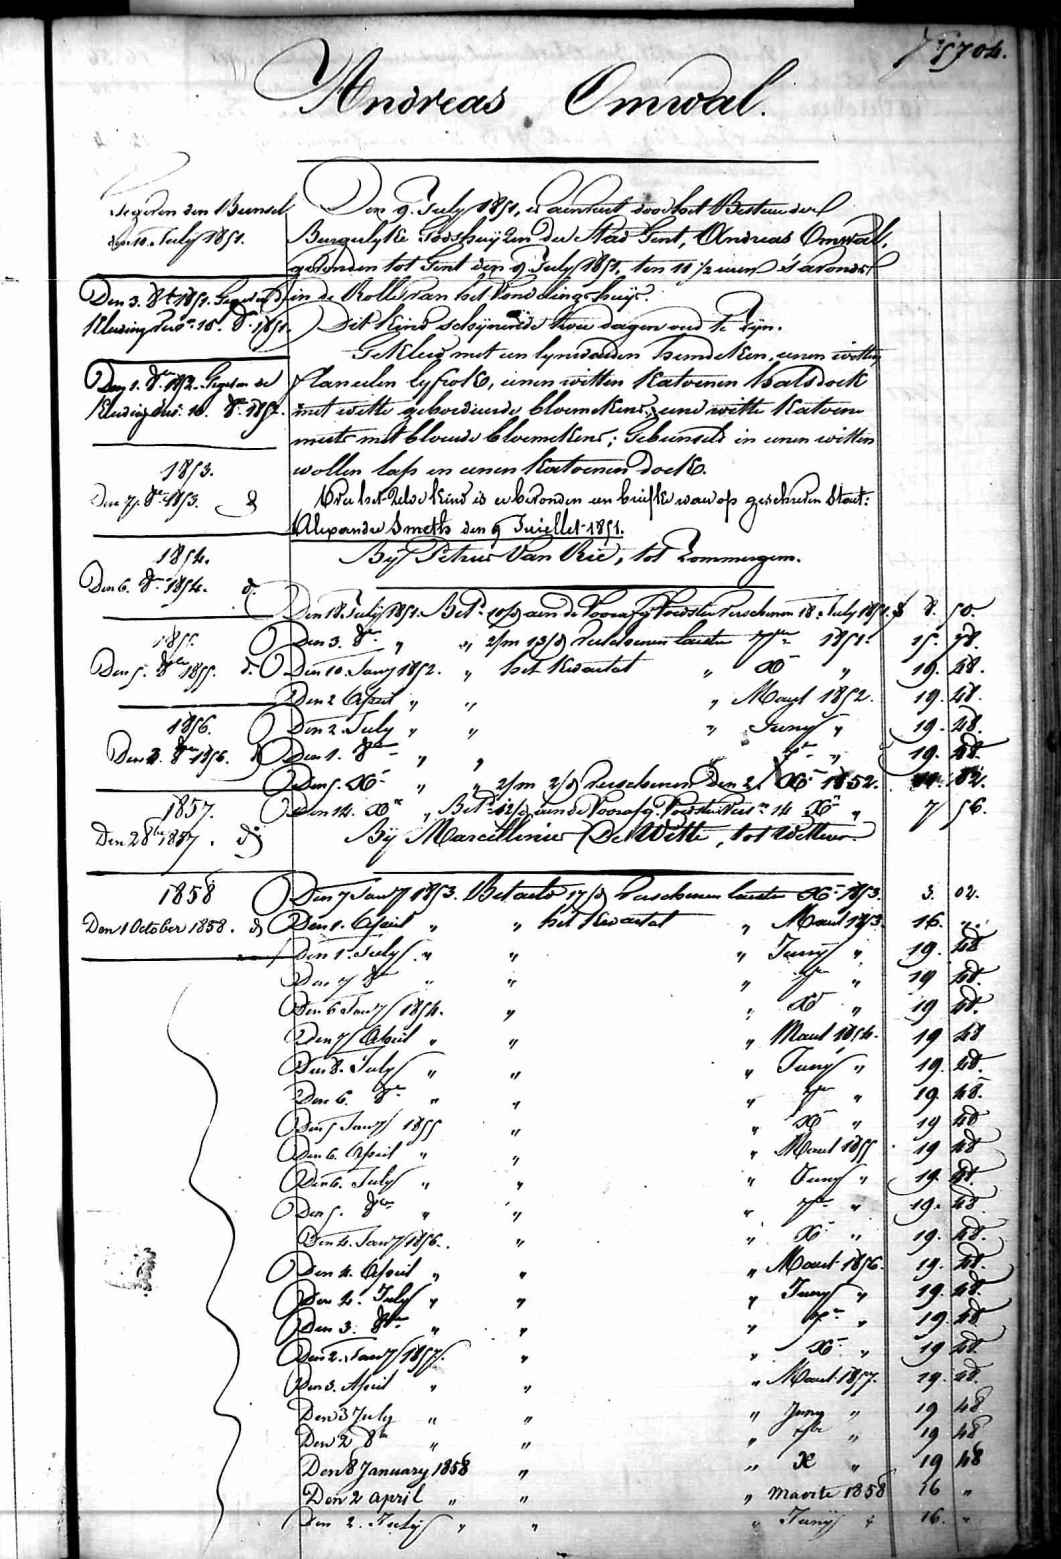 704.
Andreas Omwal.
Gegeven den Bunsel
den 10 July 1851.
Den 3. 8br 1851. Gegeven de
Kleeding 10. 8r 1851.
Den 1. 8r 1852. Gegeven de
Kleeding 10. 8r 1852.
1853.
Den 7. 8r 1853.
1854.
Den 6. 8r 1854. d°
1855.
Den 5. 8br 1855. d°
1856.
Den 3. 8br 1856. d°
1857.
Den 2 8br 1857. d°
1858
Den 1 October 1858. d°
Den 9. July 1851, is aenveert door het Bestuur der
Burgerlyke Godshuyzen der Stad Gent, Andreas Omwal,
gevonden tot Gent den 9 July 1851, ten 11 1/2 uren s'avonds
in de Rolle van het Vondelinghuys.
Dit kind schynende twee dagen oud te zyn.
Gekleed met een lynwaeden hemdeken, eenen witten
flanelen lyfrok, eenen witten katoenen halsdoek
met witte geborduurde bloemekens, eene witte katoene
muts met blouwe bloemekens; gebunseld in eenen witten
wollen lap en eenen katoenen doek.
het zelve kind is er bevonden een briefke waer op geschreven staet:
Alexander Smets den 9 Juillet 1851.
Bij Petrus Van Rie, tot Zommergem.
Den 18 July 1851. Bet. aen de Voorafg. Voedster verschenen 18 July 1851. 8. 50.
Den 3. 8br " " 2/m 13/d verschenen laeste 7br 1851. 15. 78.
Den 10. Janry 1852. " het kwartael " Xr " 19. 48.
Den 2 April " " " Maert 1852. 19. 48.
Den 2 July " " " Juny " 19. 48.
Den 1. 8br " " " 7br " 19. 48.
Den 5. Xr " " 2/m 2/d verschenen den 2. Xr 1852. 82.
Den 14. Xr " Bet. 12/d aen de Voorafg. Voedster 14 Xr " 7 56.
Bij Marcellenus De Wette, tot Wetteren
Den 7 Janry 1853. Betaeld 17/d verschenen laeste Xr 1853. 3. 02.
Den 1. April " " het kwartael " Maert 1853. 16. "
Den 1. July " " " Juny " 19. 48
Den 7 8br " " " 7br " 19 48.
Den 6 Janry 1854. " " Xr " 19 48.
Den 7 April " " " Maert 1854. 19 48
Den 8. July " " " Juny " 19. 48.
Den 6. 8br " " " 7br " 19. 48.
Den 5 Janry 1855 " " Xr " 19 48
Den 6. April " " " Maert 1855 19 48
Den 6. July " " " Juny " 19. 48.
Den 5. 8br " " " 7br " 19. 48.
Den 4. Janry 1856. " " Xr " 19. 48.
Den 4. April " " " Maert 1856. 19. 48.
Den 2. July " " " Juny " 19. 48.
Den 3. 8br " " " 7br " 19. 48.
Den 2. Janry 1857. " " Xr " 19 48.
Den 3. April " " " Maert 1857. 19. 48.
Den 3 July " " " Juny " 19 48
Den 2 8br " " " 7br " 19 48
Den 8 January 1858 " " X " 19 48
Den 2 april " " " Maerte 1858 16 "
Den 2. July " " " Juny " 16. "